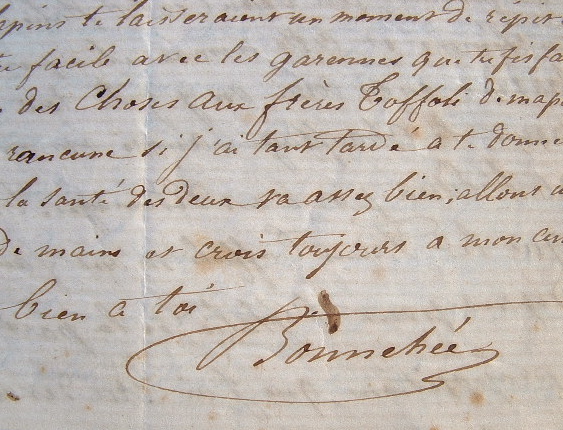 lapins te laisseraient un moment de répit
facile avec les garennes que tu fis fa
des Choses aux frères Toffoli de ma p
rancune si j'ai tant tardé a te donne
la santé des deux va assez bien; allons u
De mains et crois toujours a mon am
bien a toi
Bonnehée